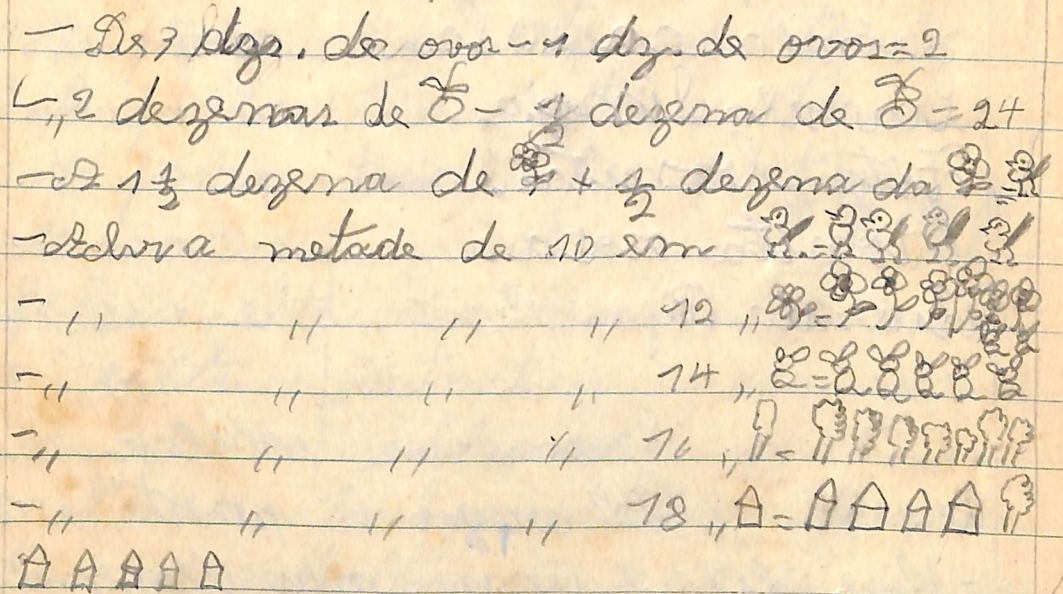 - De 3 dzs. de ovos - 1 dz. de ovos = 2
„ 2 dezenas de - 1/2 dezena de = 24
- A 1 1/2 dezena de + 1/2 dezena da =
- a metade de 10 em =
- „ „ „ „ 12 „ =
- „ „ „ „ 14 „ =
- „ „ „ „ 16 „ =
- „ „ „ „ 18 „ =